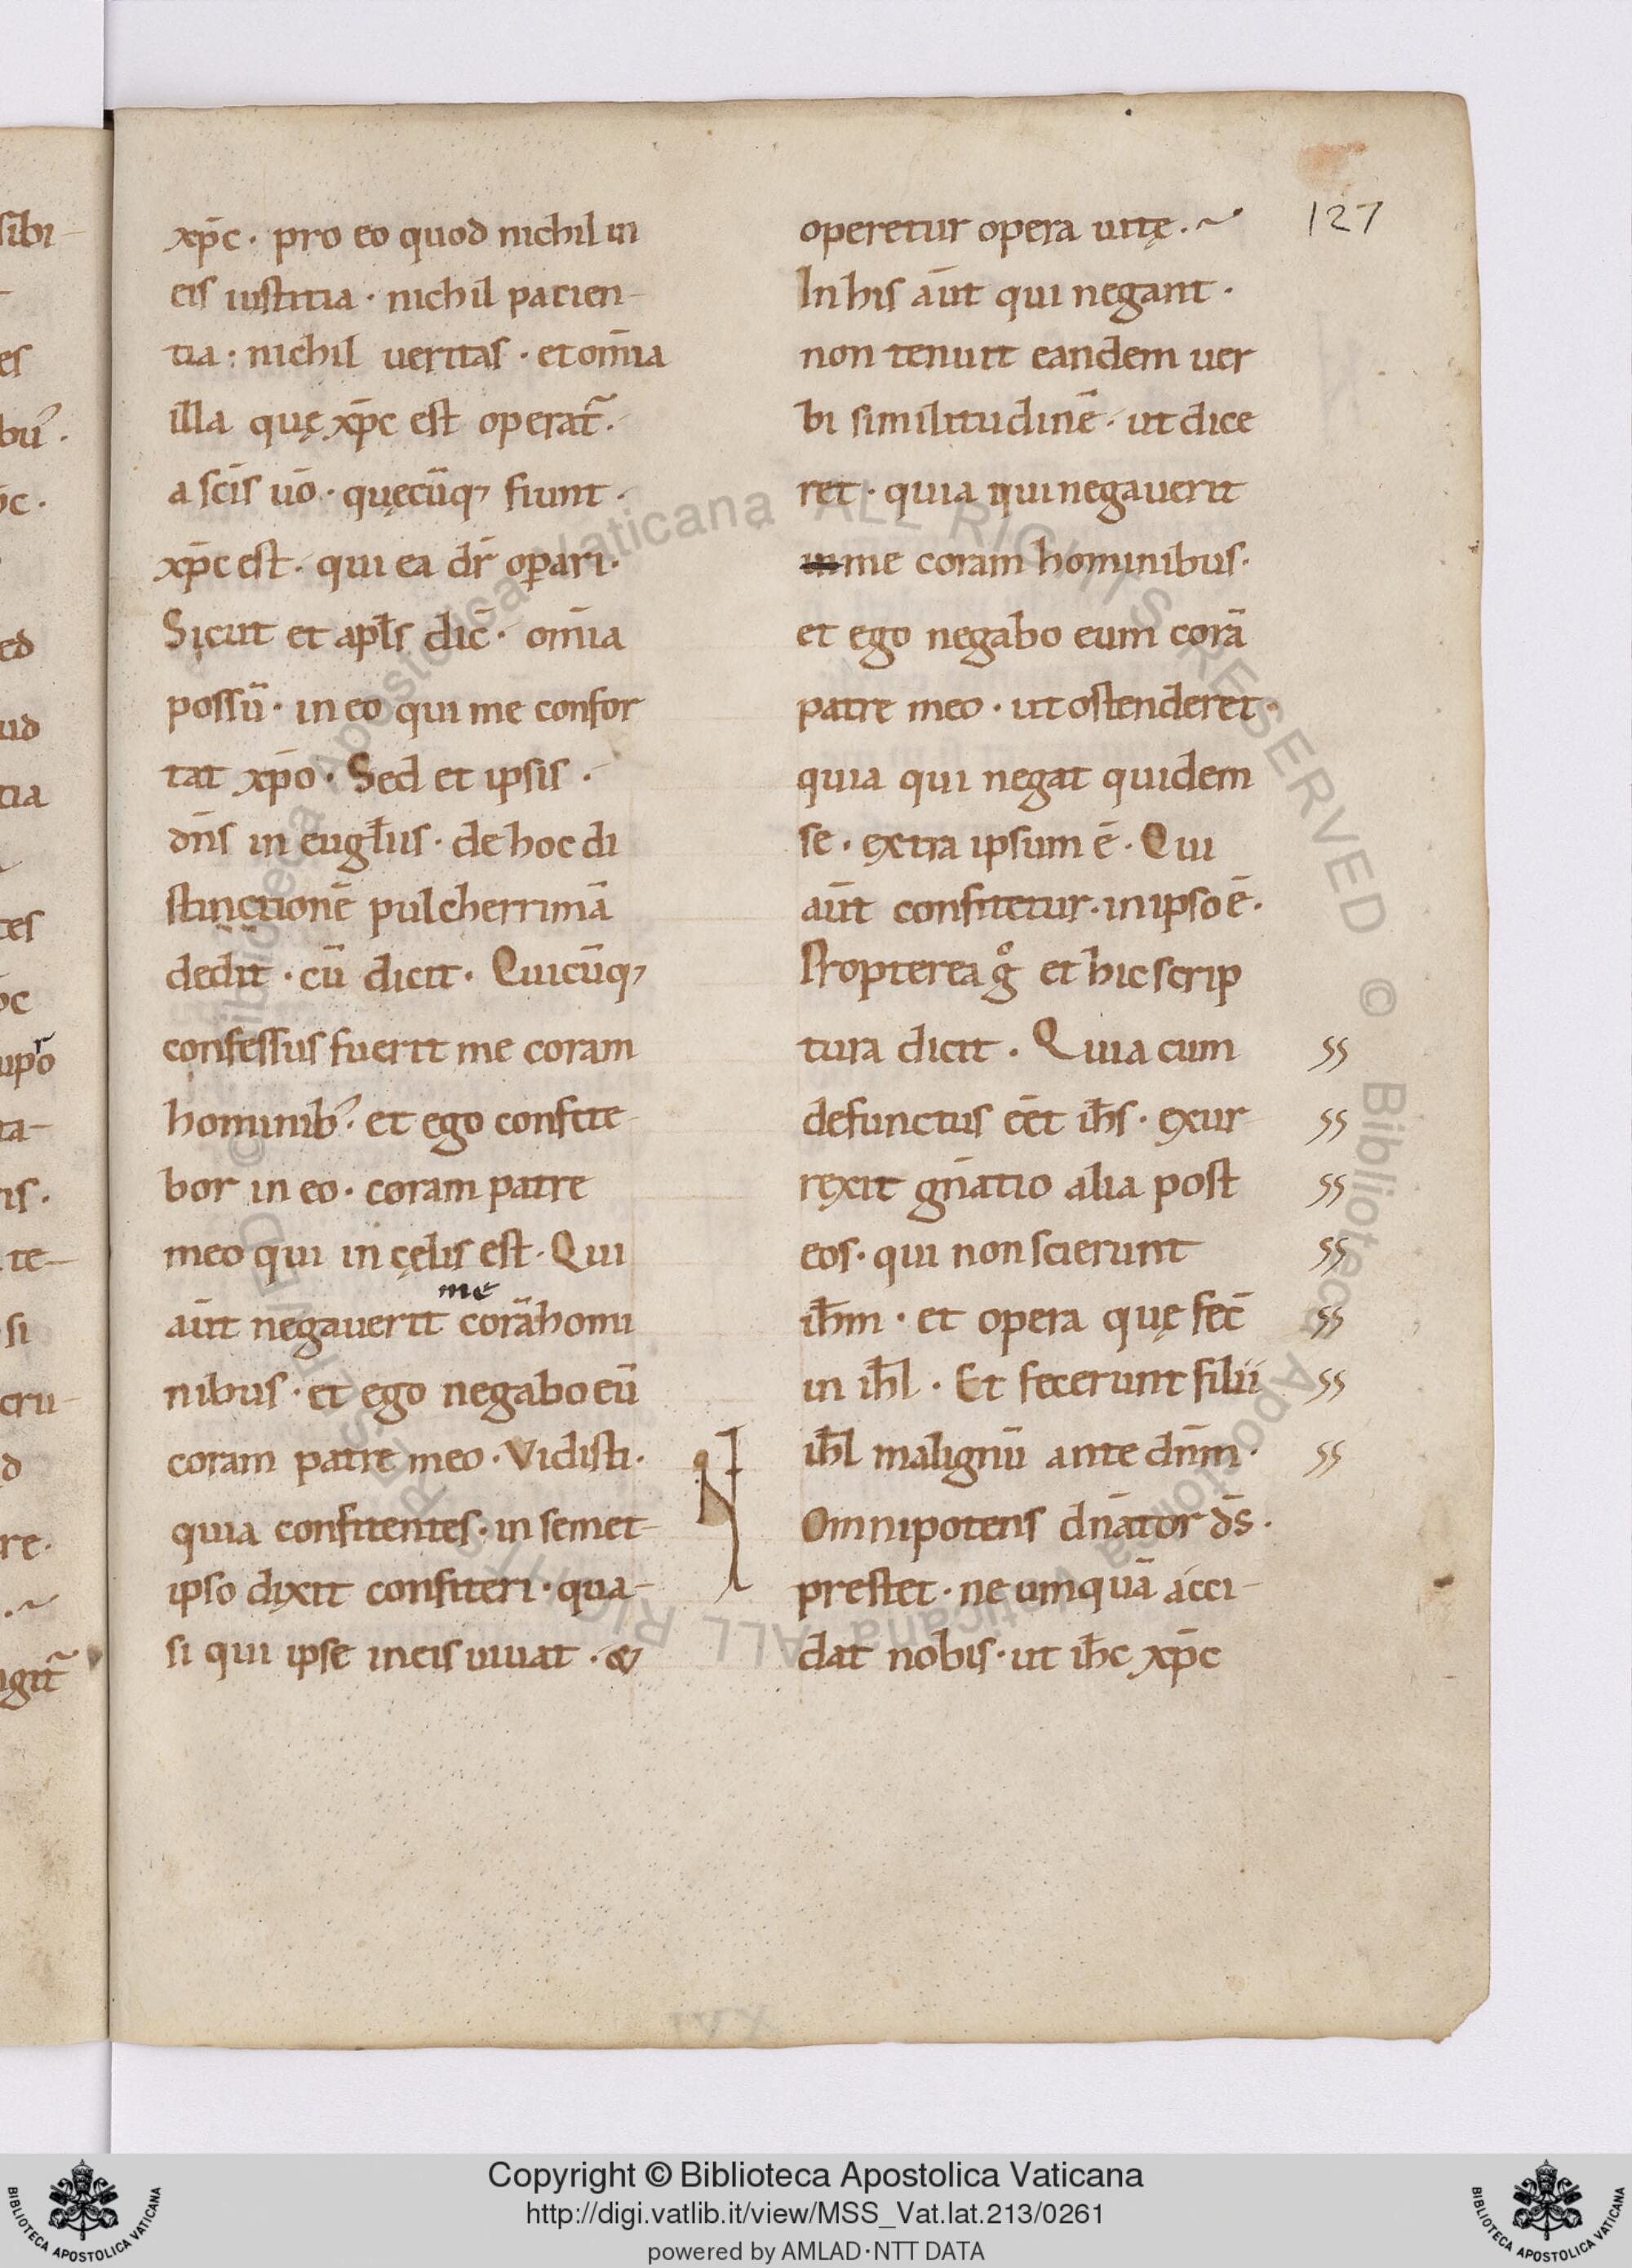 xp̄c · pro eo quod nichil in
eis iustitia · nichil pacien-
tia : nichil ueritas · et om̄ia
illa quę xp̄c est operat᷑ ·
a scīs uō · quęcūq; fiunt ·
xp̄c est · qui ea dr̄ oꝑari ·
Sicut et apl̄s dic̄ · om̄ia
possū · in eo qui me confor
tat xp̄o · Sed et ipsis ·
dn̄s in eugl̄iis · de hoc di
stinctionē pulcherrimā
dedit · cū dicit · Quicūq;
confessus fuerit me coram
hominib; · et ego confite-
bor in eo · coram patre
meo qui in cęlis est · Qui
me
aūt negauerit corā homi
nibus · et ego negabo eū
coram patre meo · Vidisti ·
quia confitentes · in semet-
ipso dixit confiteri · qua-
si qui ipse in eis uiuat · &
operetur opera uitę · ~
In his aūt qui negant ·
non tenuit eandem uer
bi similitudinē · ut dice
ret · quia qui negauerit
in me coram hominibus ·
et ego negabo eum corā
patre meo · ut ostenderet ·
quia qui negat quidem
se · extra ipsum ē · Qui
aūt confitetur · in ipso ē ·
Propterea gͦ et hic scrip
tura dicit · Quia cum
defunctus eēt ih̄s · exur-
rexit gn̄atio alia post
eos · qui non scierunt
ih̄m · et opera quę fec̄
in ih̄l · Et fecerunt filii
ih̄l malignū ante dn̄m ·
Omnipotens dn̄ator ds̄ ·
prestet · ne umquā acci-
dat nobis · ut ih̄c xp̄c
127
ss
ss
ss
ss
ss
ss
ss
Copyright © Biblioteca Apostolica Vaticana
http://digi.vatlib.it/view/MSS_Vat.lat.213/0261
powered by AMLAD·NTT DATA
BIBLIOTECA APOSTOLICA VATICANA
BIBLIOTECA APOSTOLICA VATICANA